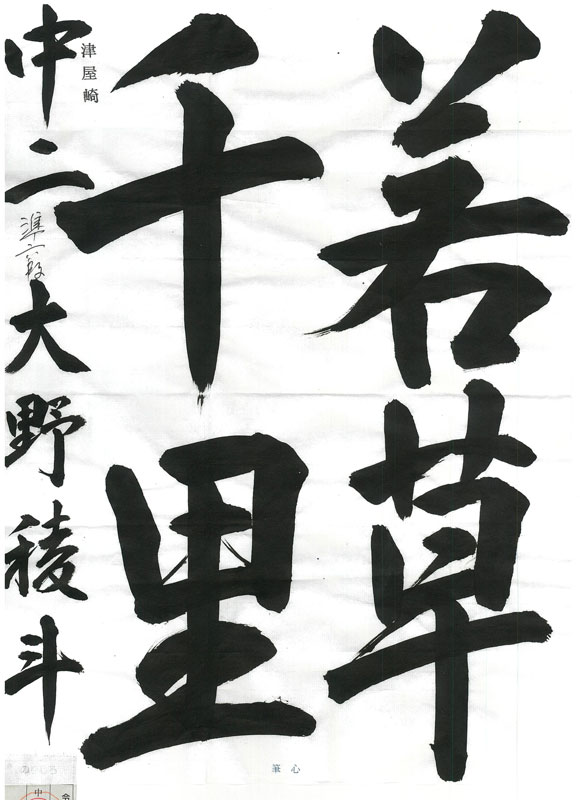 若草
千里
津屋崎
中二 準六段 大野稜斗
筆心
中